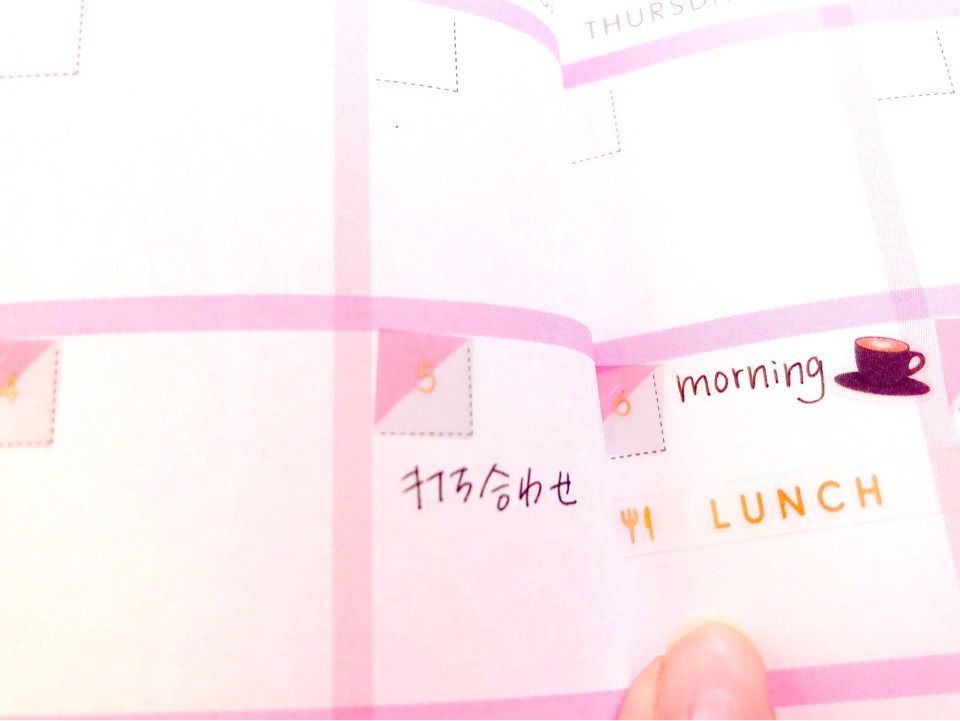 THURSDA
4
5
打ち合わせ
6
morning
LUNCH